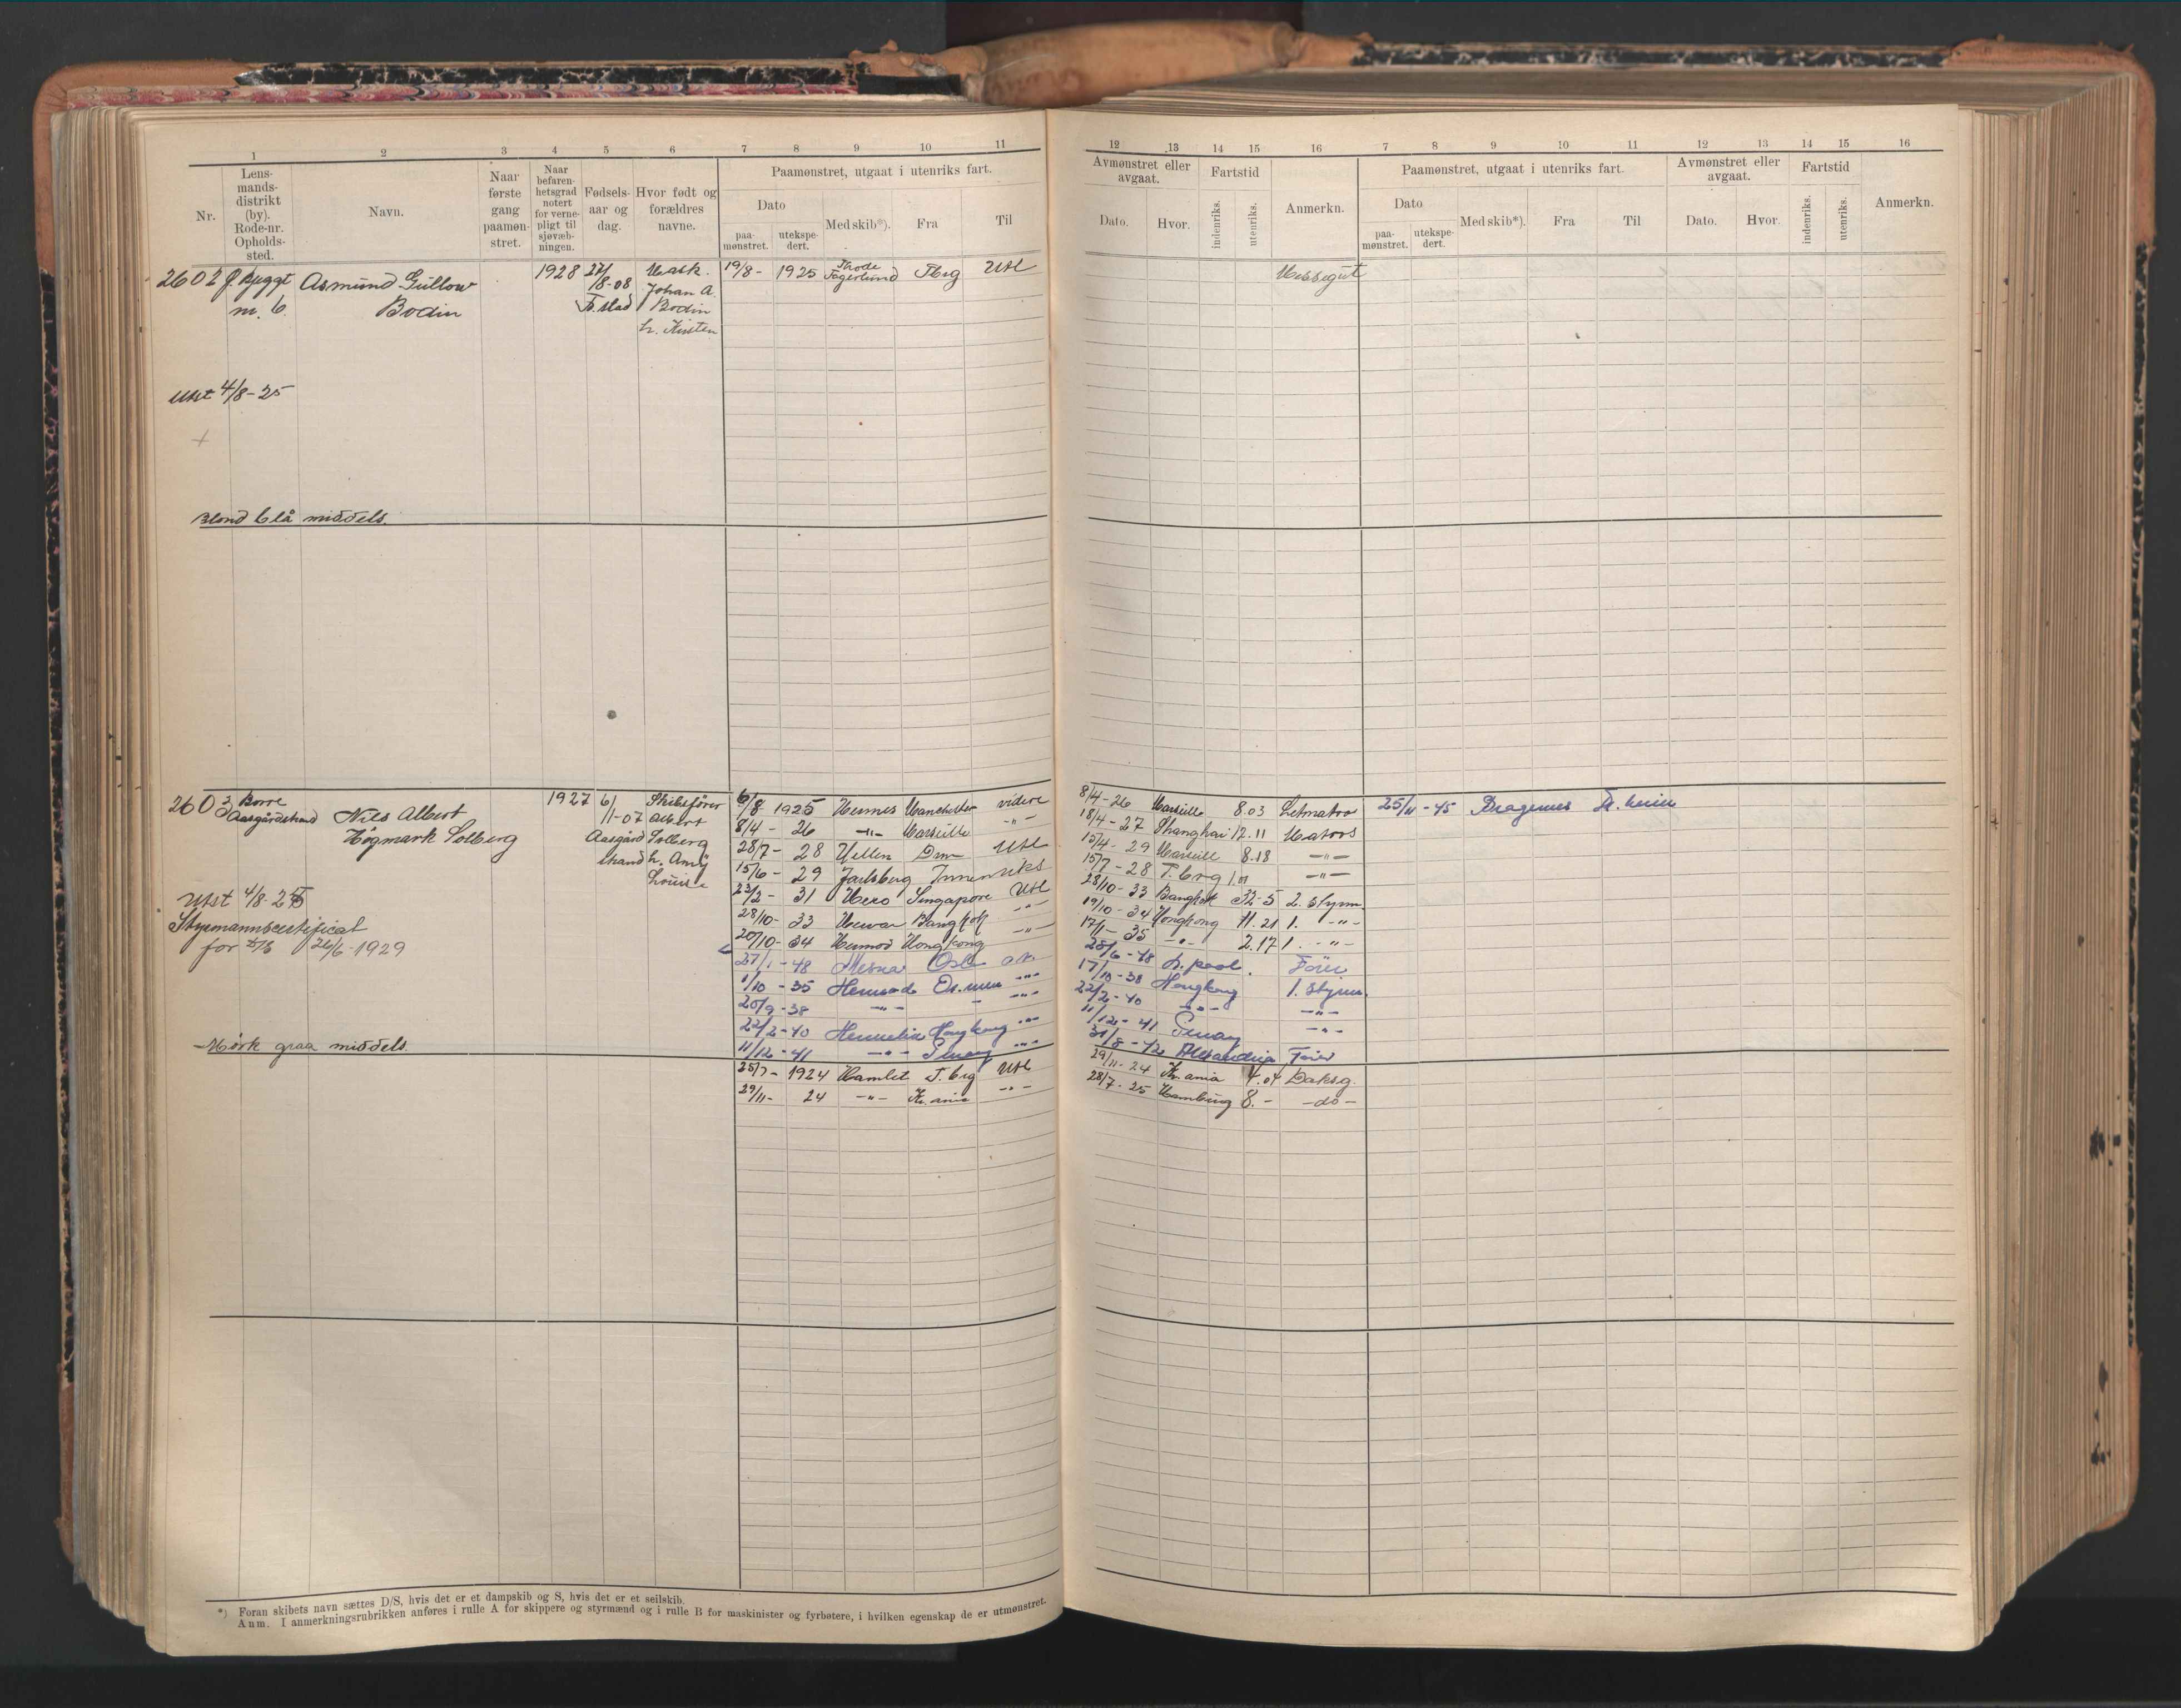 1 2 3 4 5 6 7 8 9 10 11
Nr.
Lens-
mands-
distrikt
(by).
Rode-nr.
Opholds-
sted.
Navn.
Naar
første
gang
paamøn-
stret.
Naar
befaren-
hetsgrad
notert
for verne-
pligt til
sjøvæb-
ningen.
Fødsels-
aar og
dag.
Hvor født og
forældres
navne.
Paamønstret, utgaat i utenriks fart.
Dato
paa-
mønstret.
utekspe-
dert.
Med skib*).
Fra
Til
2602 Asmund Gullow
Bodin
m. 6
1928 27/
/8-08
Mask.
Johan A.
Bodin
h. Kirsten
19/8- 1925 Thode
Fagerlund Tbrg Utl
Utst 4/8-25
Blond blå middels.
2603 Borre
Aasgårdstrand
Nils Albert
Högmark Solberg
1927 6/
/1-07
Aasgård
strand
Skibsfører
Albert
Solberg
h. Amy
Louise
6/8 1925 Hermes Manchester videre
8/4- 26 -"- Marseille -"-
28/7- 28 Hellen Drm Utl
15/6- 29 Jarlsberg Innenriks
23/2- 31 Hero Singapore Utl
28/10- 33 Bangkok -"-
20/10- 34 Hermod Hongkong -"-
27/1-48 Mesna Oslo
1/10-35 -"-
20/9-38 -"- -"-
22/2-40 Hongkong -"-
11/12-41 -"- Penang -"-
25/7- 1924 Hamlet T.brg Utl
29/11- 24 -"- Kr.ania -"-
Utst 4/8-25
Styrmannscertificat
for 26/6-1929
Mörk graa middels
*) Foran skibets navn sættes D/S, hvis det er et dampskib og S, hvis det er et seilskib.
Anm. I anmerkningsrubrikken anføres i rulle A for skippere og styrmænd og i rulle B for maskinister og fyrbøtere, i hvilken egenskap de er utmønstret.
12 13 14 15 16 7 8 9 10 11 12 13 14 15 16
Avmønstret eller
avgaat.
Dato.
Hvor.
Fartstid
indenriks.
utenriks.
Anmerkn.
Paamønstret, utgaat i utenriks fart.
Dato
paa-
mønstret.
utekspe-
dert.
Med skib*).
Fra
Til
Avmønstret eller
avgaat.
Dato.
Hvor.
Fartstid
indenriks.
utenriks.
Anmerkn.
Messegut
8/4-26 Marseille 8.03 Letmatros 25/11-45 Dragenes
18/4-27 Shanghai 12.11 Matros
15/4-29 Marseille 8.18 -"-
15/7-28 T.brg -"-
28/10-33 Bangkok 32-5 2. styrm.
19/10-34 Hongkong 11.21 1. -"-
17/11-35 -"- 2.17 1. -"-
28/6-48 L.pool. Fører
17/10-38 Hongkong 1. styrm.
22/2-40 -"- -"-
11/12-41 Penang -"-
31/8-42 Alexandria Fører
29/11-24 Kr.ania 4.04 Daksg.
28/7-25 Hamburg 8.- -do-